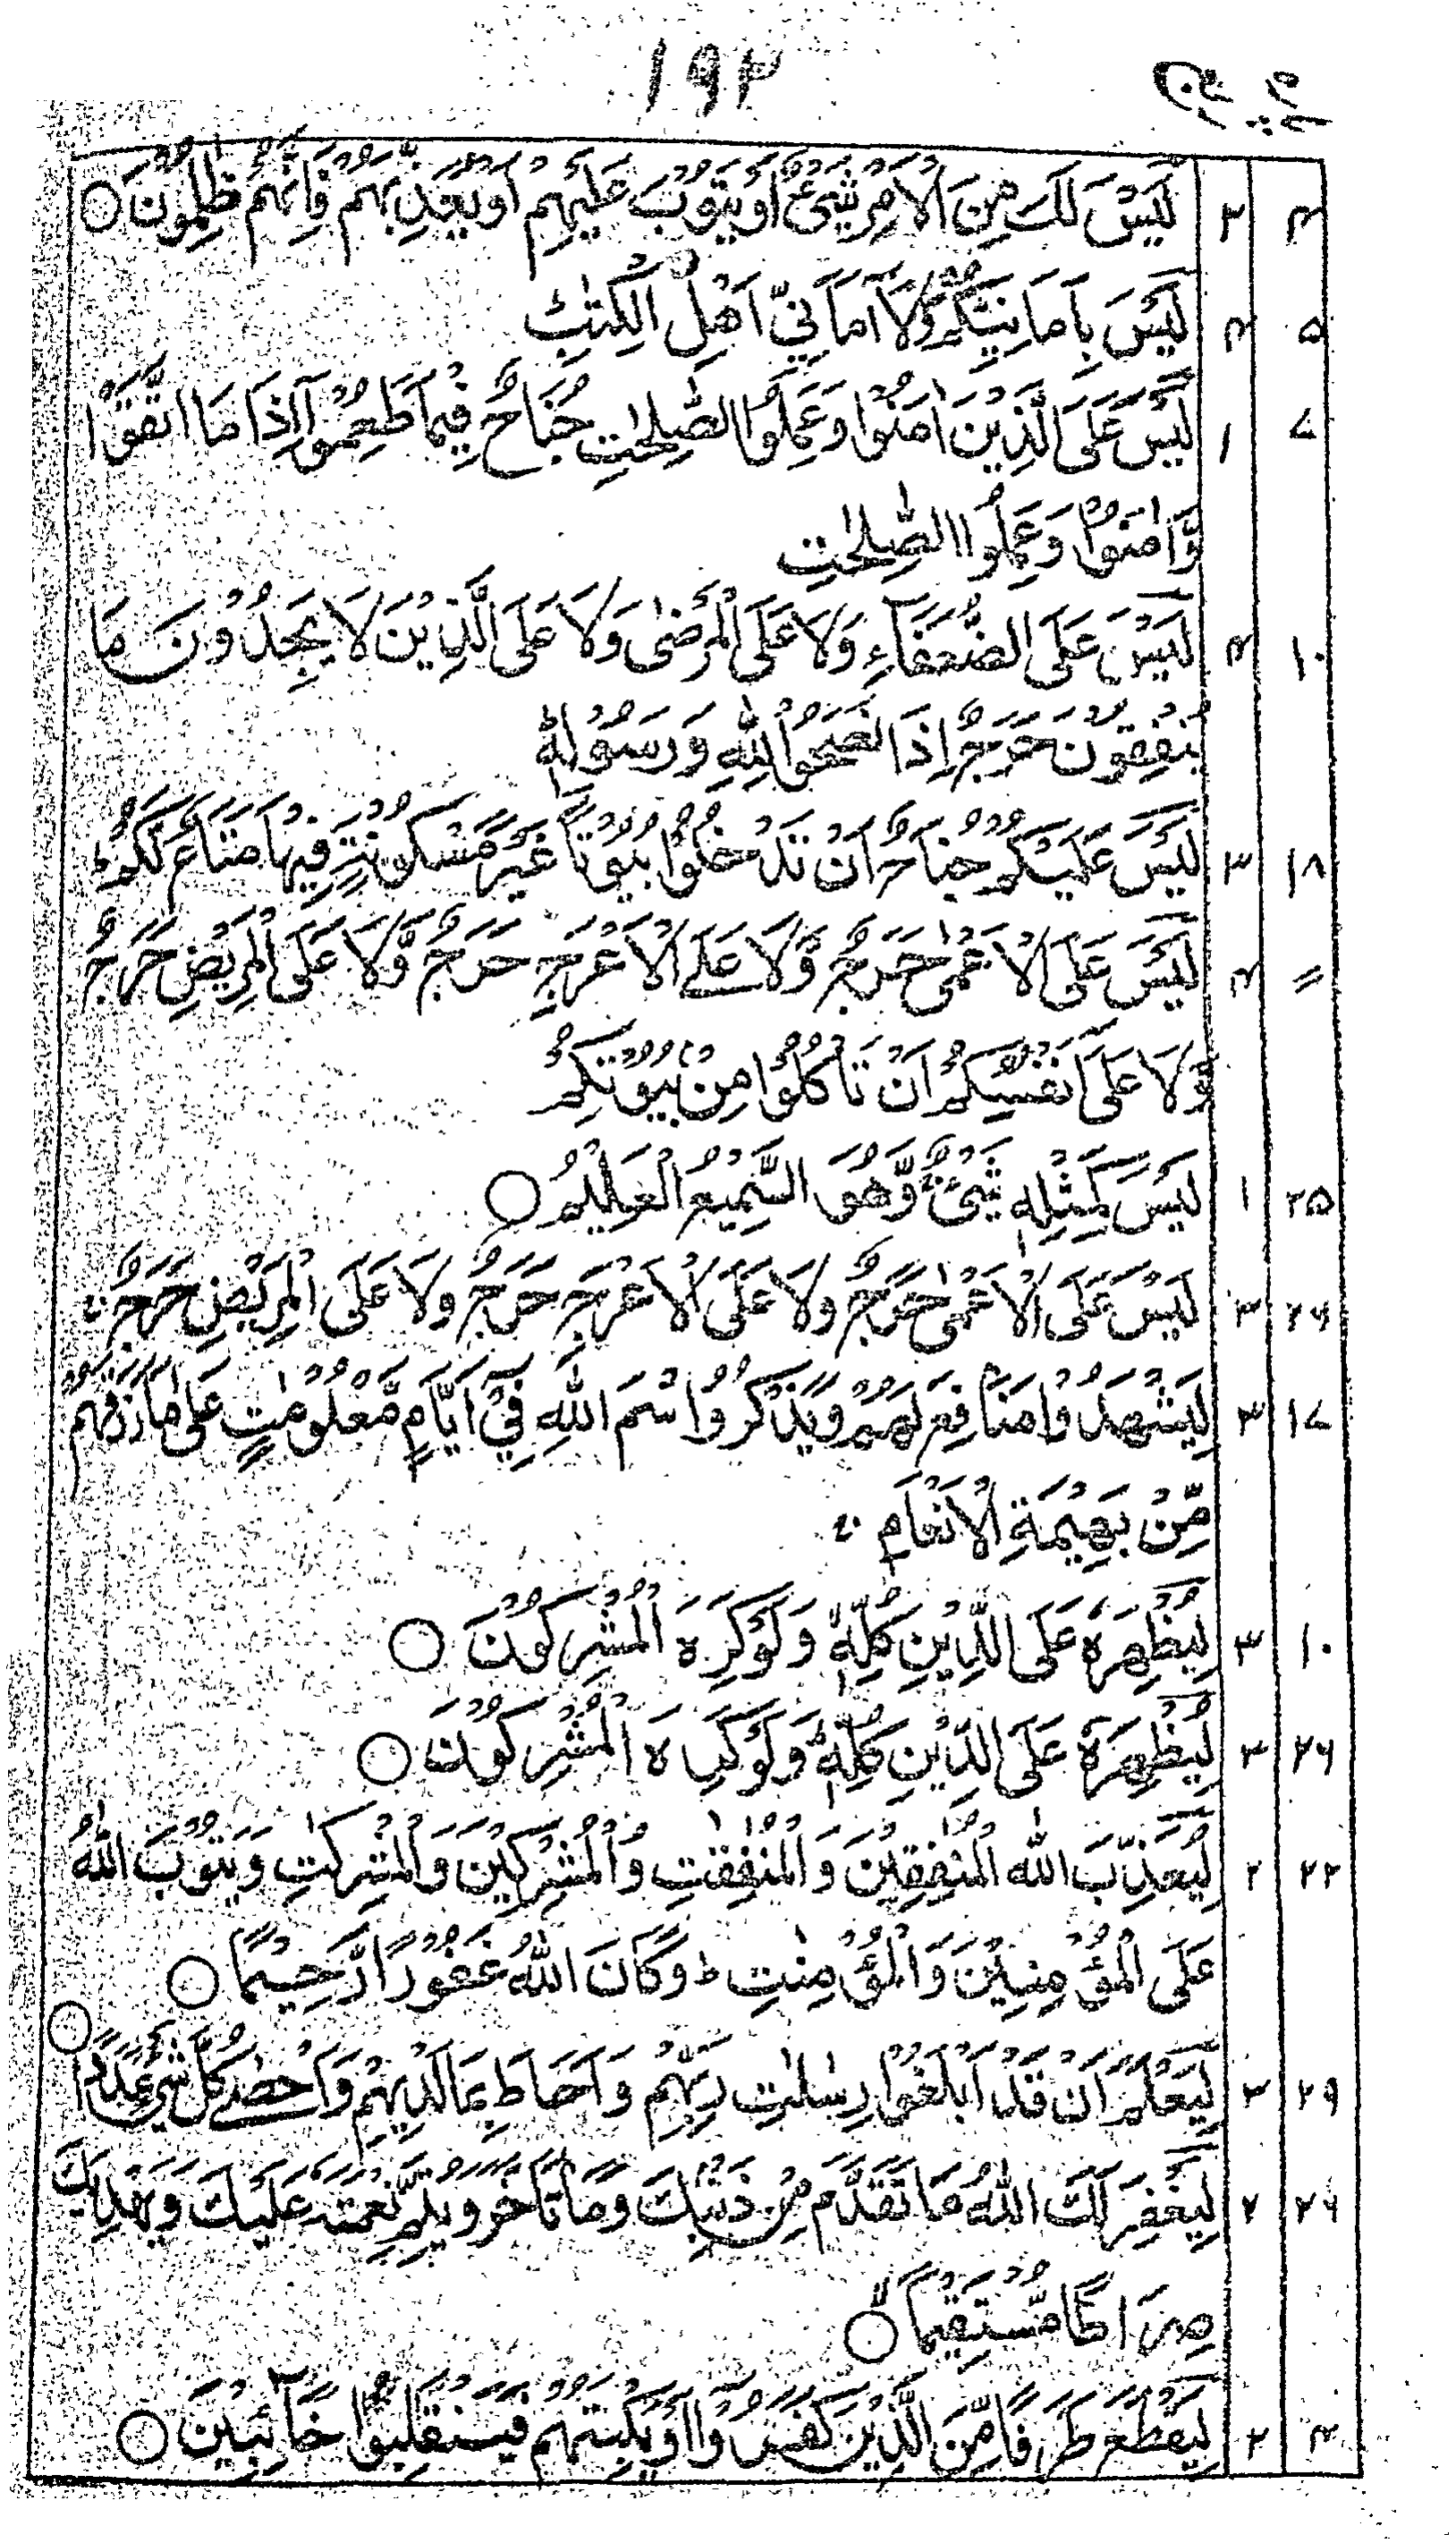 ۱۹۳
۴ ۲ لَيْسَ لَكَ مِنَ الْاَمْرِ شَيْءٌ اَوْ يَتُوْبَ عَلَيْهِمْ اَوْ يُعَذِّبَهُمْ فَاِنَّهُمْ ظٰلِمُوْنَ ○
۵ ۴ لَيْسَ بِاَمَانِيِّكُمْ وَلَاۤ اَمَانِيِّ اَهْلِ الْكِتٰبِ
۷ ۱ لَيْسَ عَلَى الَّذِيْنَ اٰمَنُوْا وَعَمِلُوا الصّٰلِحٰتِ جُنَاحٌ فِيْمَا طَعِمُوْۤا اِذَا مَا اتَّقَوْا
وَّاٰمَنُوْا وَعَمِلُوا الصّٰلِحٰتِ
۱۰ ۴ لَيْسَ عَلَى الضُّعَفَآءِ وَلَا عَلَى الْمَرْضٰى وَلَا عَلَى الَّذِيْنَ لَا يَجِدُوْنَ مَا
يُنْفِقُوْنَ حَرَجٌ اِذَا نَصَحُوْا لِلّٰهِ وَرَسُوْلِهٖ ؕ
۱۸ ۳ لَيْسَ عَلَيْكُمْ جُنَاحٌ اَنْ تَدْخُلُوْا بُيُوْتًا غَيْرَ مَسْكُوْنَةٍ فِيْهَا مَتَاعٌ لَّكُمْ ؕ
〃 ۴ لَيْسَ عَلَى الْاَعْمٰى حَرَجٌ وَّلَا عَلَى الْاَعْرَجِ حَرَجٌ وَّلَا عَلَى الْمَرِيْضِ حَرَجٌ
وَّلَا عَلٰۤى اَنْفُسِكُمْ اَنْ تَاْكُلُوْا مِنْۢ بُيُوْتِكُمْ
۲۵ ۱ لَيْسَ كَمِثْلِهٖ شَيْءٌ ۚ وَّهُوَ السَّمِيْعُ الْعَلِيْمُ ○
۲۶ ۳ لَيْسَ عَلَى الْاَعْمٰى حَرَجٌ وَلَا عَلَى الْاَعْرَجِ حَرَجٌ وَلَا عَلَى الْمَرِيْضِ حَرَجٌ ۚ
۱۷ ۳ لِيَشْهَدُوْا مَنَافِعَ لَهُمْ وَيَذْكُرُوا اسْمَ اللّٰهِ فِيْۤ اَيَّامٍ مَّعْلُوْمٰتٍ عَلٰى مَا رَزَقَهُمْ
مِّنْۢ بَهِيْمَةِ الْاَنْعَامِ ۚ
۱۰ ۳ لِيُظْهِرَهٗ عَلَى الدِّيْنِ كُلِّهٖ وَلَوْ كَرِهَ الْمُشْرِكُوْنَ ○
۲۶ ۳ لِيُظْهِرَهٗ عَلَى الدِّيْنِ كُلِّهٖ ؕ وَلَوْ كَرِهَ الْمُشْرِكُوْنَ ○
۲۲ ۲ لِيُعَذِّبَ اللّٰهُ الْمُنٰفِقِيْنَ وَالْمُنٰفِقٰتِ وَالْمُشْرِكِيْنَ وَالْمُشْرِكٰتِ وَيَتُوْبَ اللّٰهُ
عَلَى الْمُؤْمِنِيْنَ وَالْمُؤْمِنٰتِ ط وَكَانَ اللّٰهُ غَفُوْرًا رَّحِيْمًا ○
۲۹ ۳ لِيَعْلَمَ اَنْ قَدْ اَبْلَغُوْا رِسٰلٰتِ رَبِّهِمْ وَاَحَاطَ بِمَا لَدَيْهِمْ وَاَحْصٰى كُلَّ شَيْءٍ عَدَدًا ○
۲۶ ۲ لِيَغْفِرَ لَكَ اللّٰهُ مَا تَقَدَّمَ مِنْ ذَنْۢبِكَ وَمَا تَاَخَّرَ وَيُتِمَّ نِعْمَتَهٗ عَلَيْكَ وَيَهْدِيَكَ
صِرَاطًا مُّسْتَقِيْمًا ○
۴ ۲ لِيَقْطَعَ طَرَفًا مِّنَ الَّذِيْنَ كَفَرُوْۤا اَوْ يَكْبِتَهُمْ فَيَنْقَلِبُوْا خَآئِبِيْنَ ○